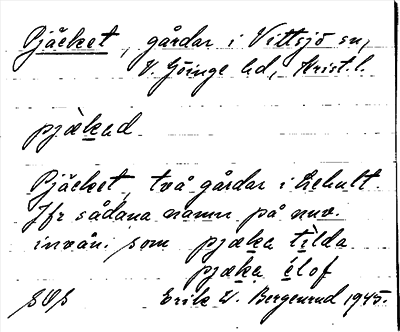 Pjäcket, gårdar i Vittsjö sn,
V. Göinge hd, Krist.l.
pjækəd
Pjäcket, två gårdar i Lehult.
Jfr sådana namn på nuv.
invån. som pjæka tilda
pjæka élof
SOS Erik W. Bergenrud 1945.